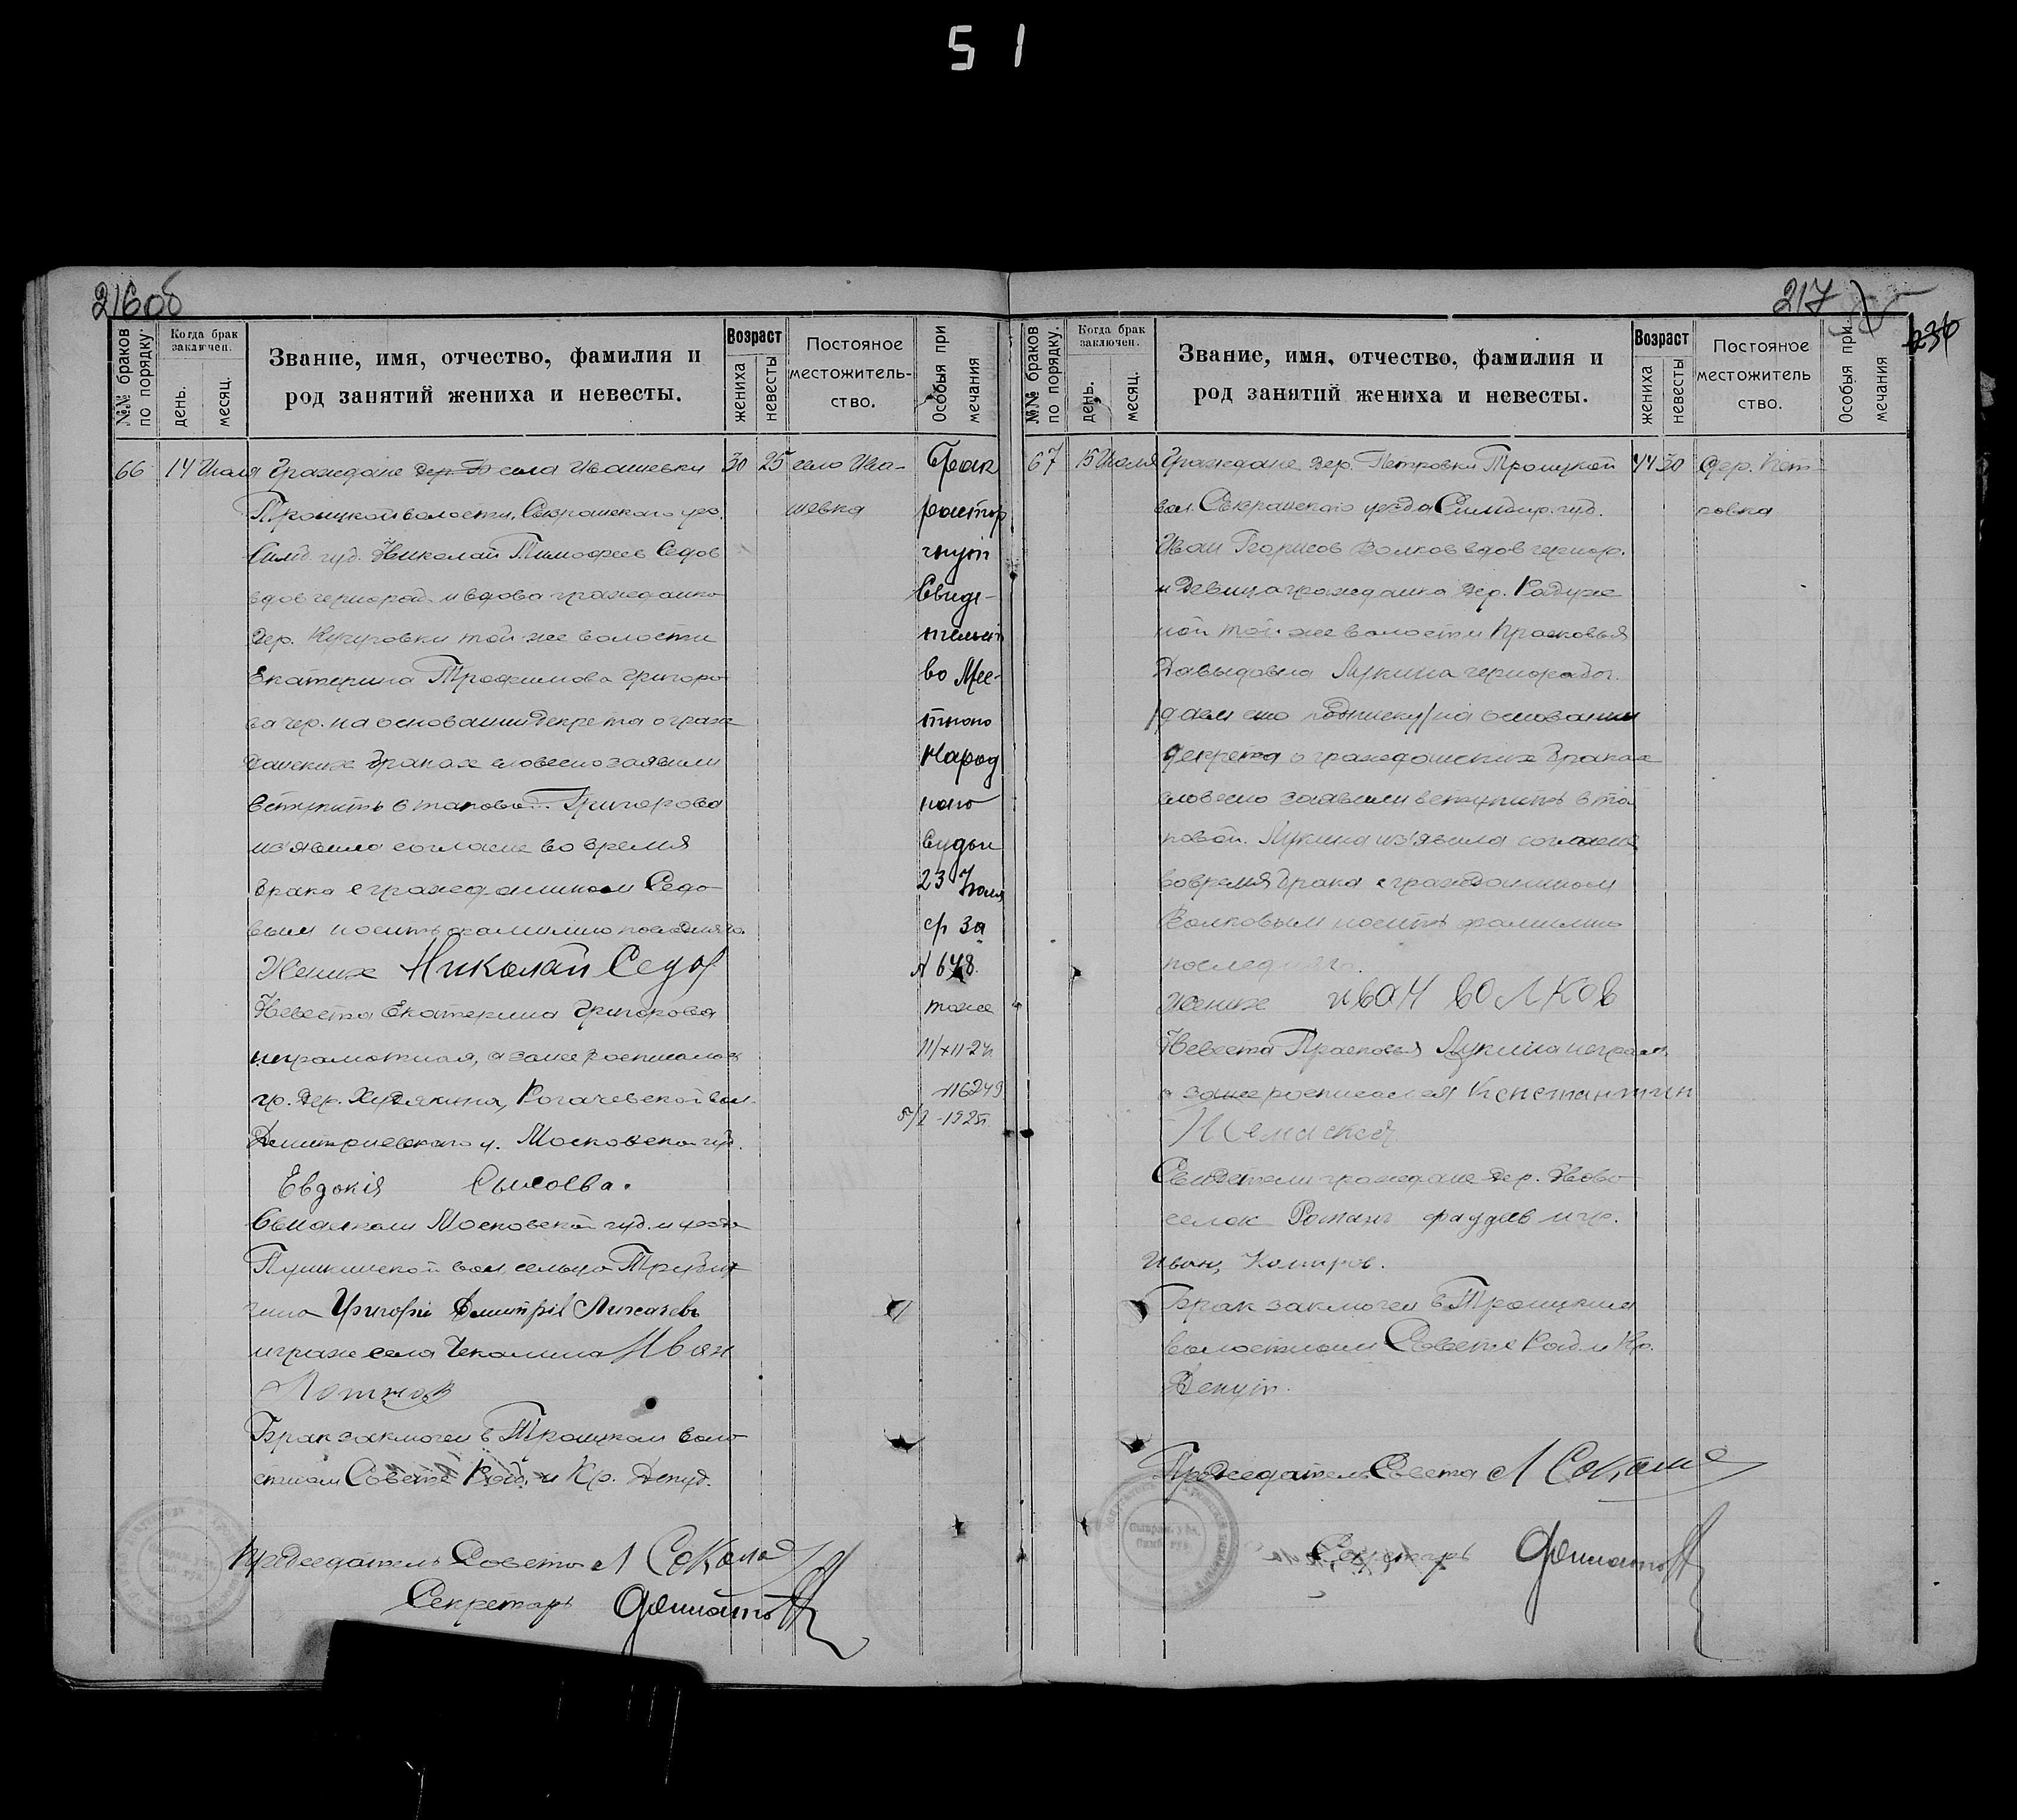 51
216об
№№ браков по порядку.
Когда брак заключен.
день.
месяц.
Звание, имя, отчество, фамилия и
род занятий жениха и невесты.
Возраст
жениха
невесты
Постояное
местожитель-
ство.
Особыя при
мечания
66 14 Июля Граждане дер. села Ивашевки 30 25 село Ива-
шевка
Троицкой волости, Сызранского уез.
Симб. губ. Николай Тимофеев Седов
вдов чернораб. и вдова гражданка
дер. Кучуровки той же волости
Екатерина Трофимова Григоро
ва чер. на основании Декрета о граж
данских браках словесно заявили
вступить в таковой. Григорова
из'явила согласие во время
брака с гражданином Седо
вым носить фамилию последняго
Жених Николай Седов
Невеста Екатерина Григорова
неграмотная, а за нее росписалась
гр. дер. Худякина, Рогачевской вол.
Дмитриевского у. Московской губ.
Евдокія Сысоева.
Московской губ. и уезда
Пушкинской вол. сельцо
Григорій Дмитрів
и граж села Чекалина Иван
Брак заключен в Троицком воло
стном Совете Раб. и Кр. Депут.
Председатель Совета
Секретарь
Брак
расторг
гнут
Свиде-
тельст
во Мес-
тного
Народ
ного
Судьи
23 Июля
с/г за
№ 648.
тоже
11/XII-24
№6249
5/2-1925
217
236
№№ браков по порядку.
Когда брак заключен.
день.
месяц.
Звание, имя, отчество, фамилия и
род занятий жениха и невесты.
Возраст
жениха
невесты
Постояное
местожитель
ство.
Особыя при-
мечания
67 15 Июля Граждане дер. Петровки Троицкой 44 30 дер. Пет-
ровка
вол. Сызранского уезда Симбир. губ.
Иван Борисов Волков вдов чернор.
и девица гражданка дер. Радуже
ной той же волости Прасковья
Давыдовна Лукина чернорабоч.
/даем сию подписку/ на основании
декрета о гражданских браках
словесно заявили вступить в та
ковой. Лукина из'явила согласие
вовремя брака с гражданином
Волковым носить фамилию
последняго.
Жених иван волков
Невеста Прасковья Лукина неграм.
а за нее росписался Константтин
Свидетели граждане дер. Ново
селок Романъ и гр.
Иван
Брак заключен в Троицким
волостном Совете Раб. и Кр.
Депут.
Председатель Совета
Секретарь